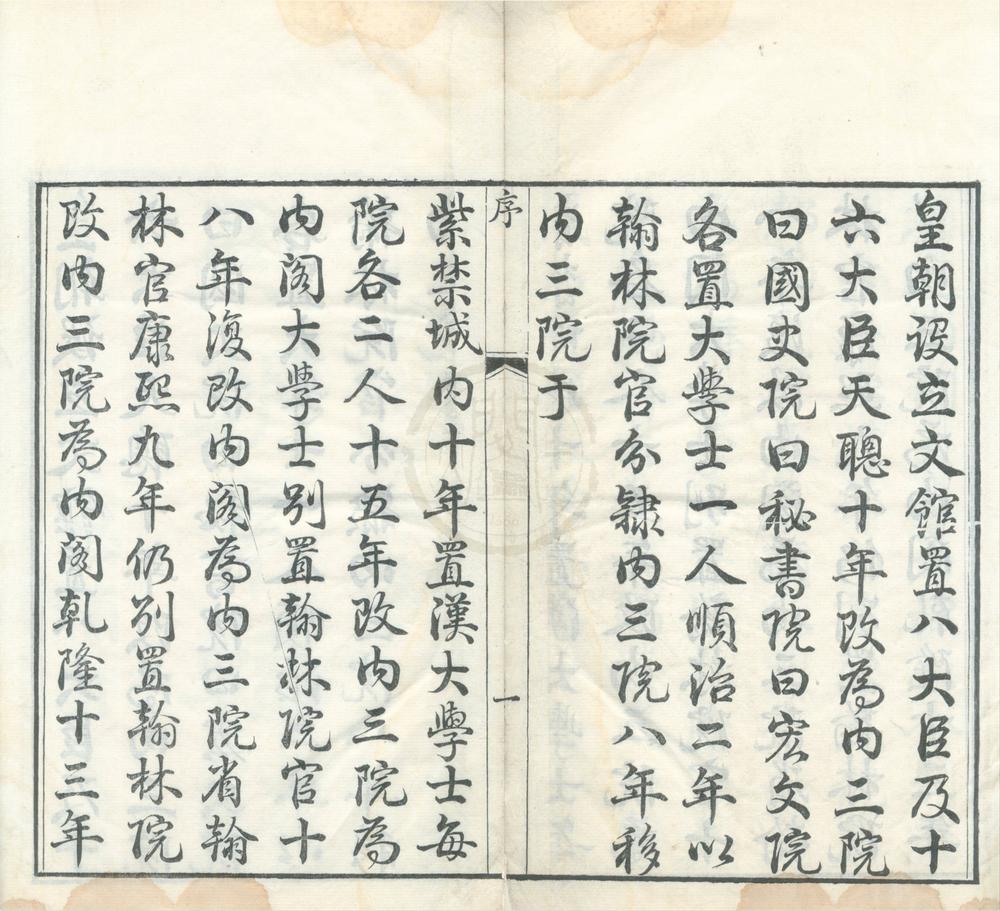 皇朝設立文館置八大臣及十
六大臣天聰十年改為内三院
曰國史院曰秘書院曰宏文院
各置大學士一人順治二年以
翰林院官分隸内三院八年移
内三院于
序
一
紫禁城内十年置漢大學士每
院各二人十五年改内三院為
内阁大學士别置翰林院官十
八年復改内阁為内三院省翰
林官康熙九年仍别置翰林院
改内三院為内阁乹隆十三年